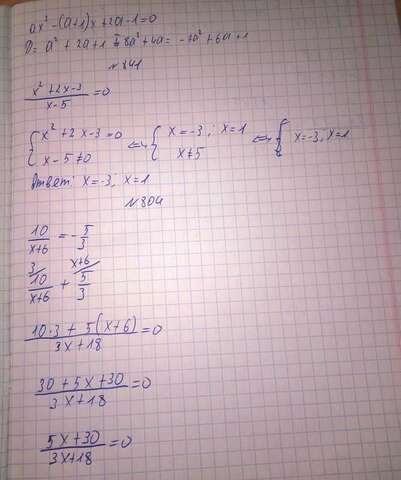 ax² - (a+1)x + 2a - 1 = 0
D = a² + 2a + 1 - 8a² + 4a = -7a² + 6a + 1
№841
x² + 2x - 3 / x - 5 = 0
{ x² + 2x - 3 = 0 ; x - 5 ≠ 0 ⇔ { x = -3; x = 1 ; x ≠ 5 ⇔ { x = -3, x = 1
Ответ: x = -3; x = 1
№804
10 / x+6 = - 5 / 3
3/ 10 / x+6 + x+6/ 5 / 3
10·3 + 5(x+6) / 3x+18 = 0
30 + 5x + 30 / 3x + 18 = 0
5x + 30 / 3x + 18 = 0